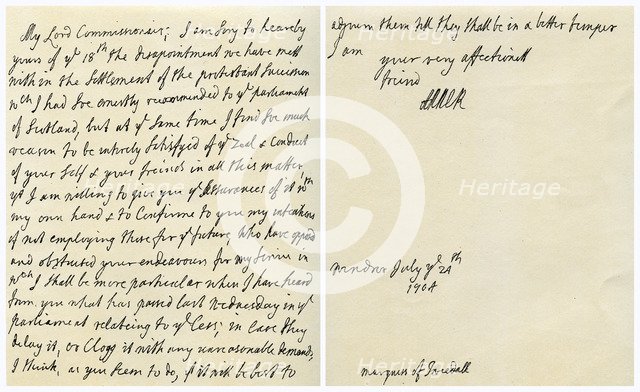 My Lord Commissioner, I am sory to hear by
yours of ye 18th the disapointment we have mett
with in the settlement of the protestant succession
wch I had soe ernestly recommended to ye parliament
of Scotland, but at ye same time I find soe much
reason to be intirely satisfyed of ye Zeal & conduct
of your self & your freinds in all this matter
yt I am willing to give you ye assurances of it in
my own hand & to confirme to you my intentions
of not employing those for ye future, who have oposd
and obstructed your endeavours for my service in
wch I shall be more particular when I have heard
from you what has passed last Wednesday in ye
parliament relating to ye Cess; in case they
delay it, or Clogg it with any unreasonable demands,
I think, as you seem to do, it will be best to
adjourn them till they shall be in a better temper
I am
your very affectionett
freind
ANNE R
windsor July ye 24th
1704
marquess of Tweedall
Heritage
Heritage
Heritage
Heritage
©